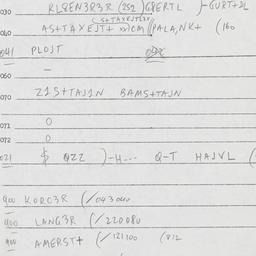 030 KLSEN3R3R (252) G8ERTL )-GURT+2L
060 AS+TAXEJT+ PALA,NK+ (160
041 PLOJT
050 -
070 Z1S+TAJ1N BAMS+TAJN
071 0
072 0
021 $ QZZ )-H--- Q-T HAJVL (
900 KORC3R (/043040
900 LANG3R (/220080
900 AMERST+ (/121100 (812